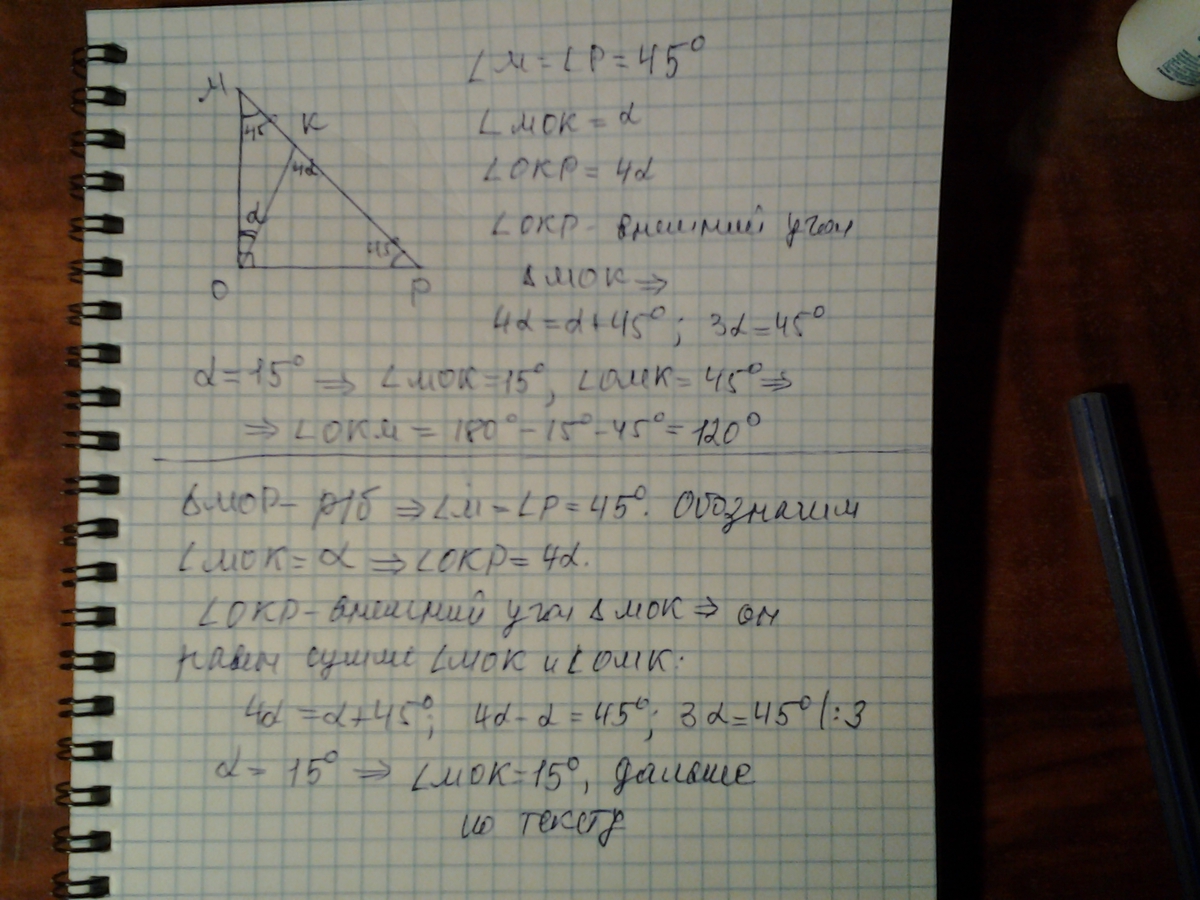 ∠M = ∠P = 45°
∠MOK = α
∠OKP = 4α
∠OKP - внешний угол
ΔMOK ⇒
4α = α + 45°; 3α = 45°
α = 15° ⇒ ∠MOK = 15°, ∠OMK = 45° ⇒
⇒ ∠OKM = 180° - 15° - 45° = 120°
M
45
K
4α
α
45°
O
P
ΔMOP - р/б ⇒ ∠M = ∠P = 45°. Обозначим
∠MOK = α ⇒ ∠OKP = 4α.
∠OKP - внешний угол ΔMOK ⇒ он
равен сумме ∠MOK и ∠OMK:
4α = α + 45°; 4α - α = 45°; 3α = 45° |:3
α = 15° ⇒ ∠MOK = 15°, дальше
по тексту